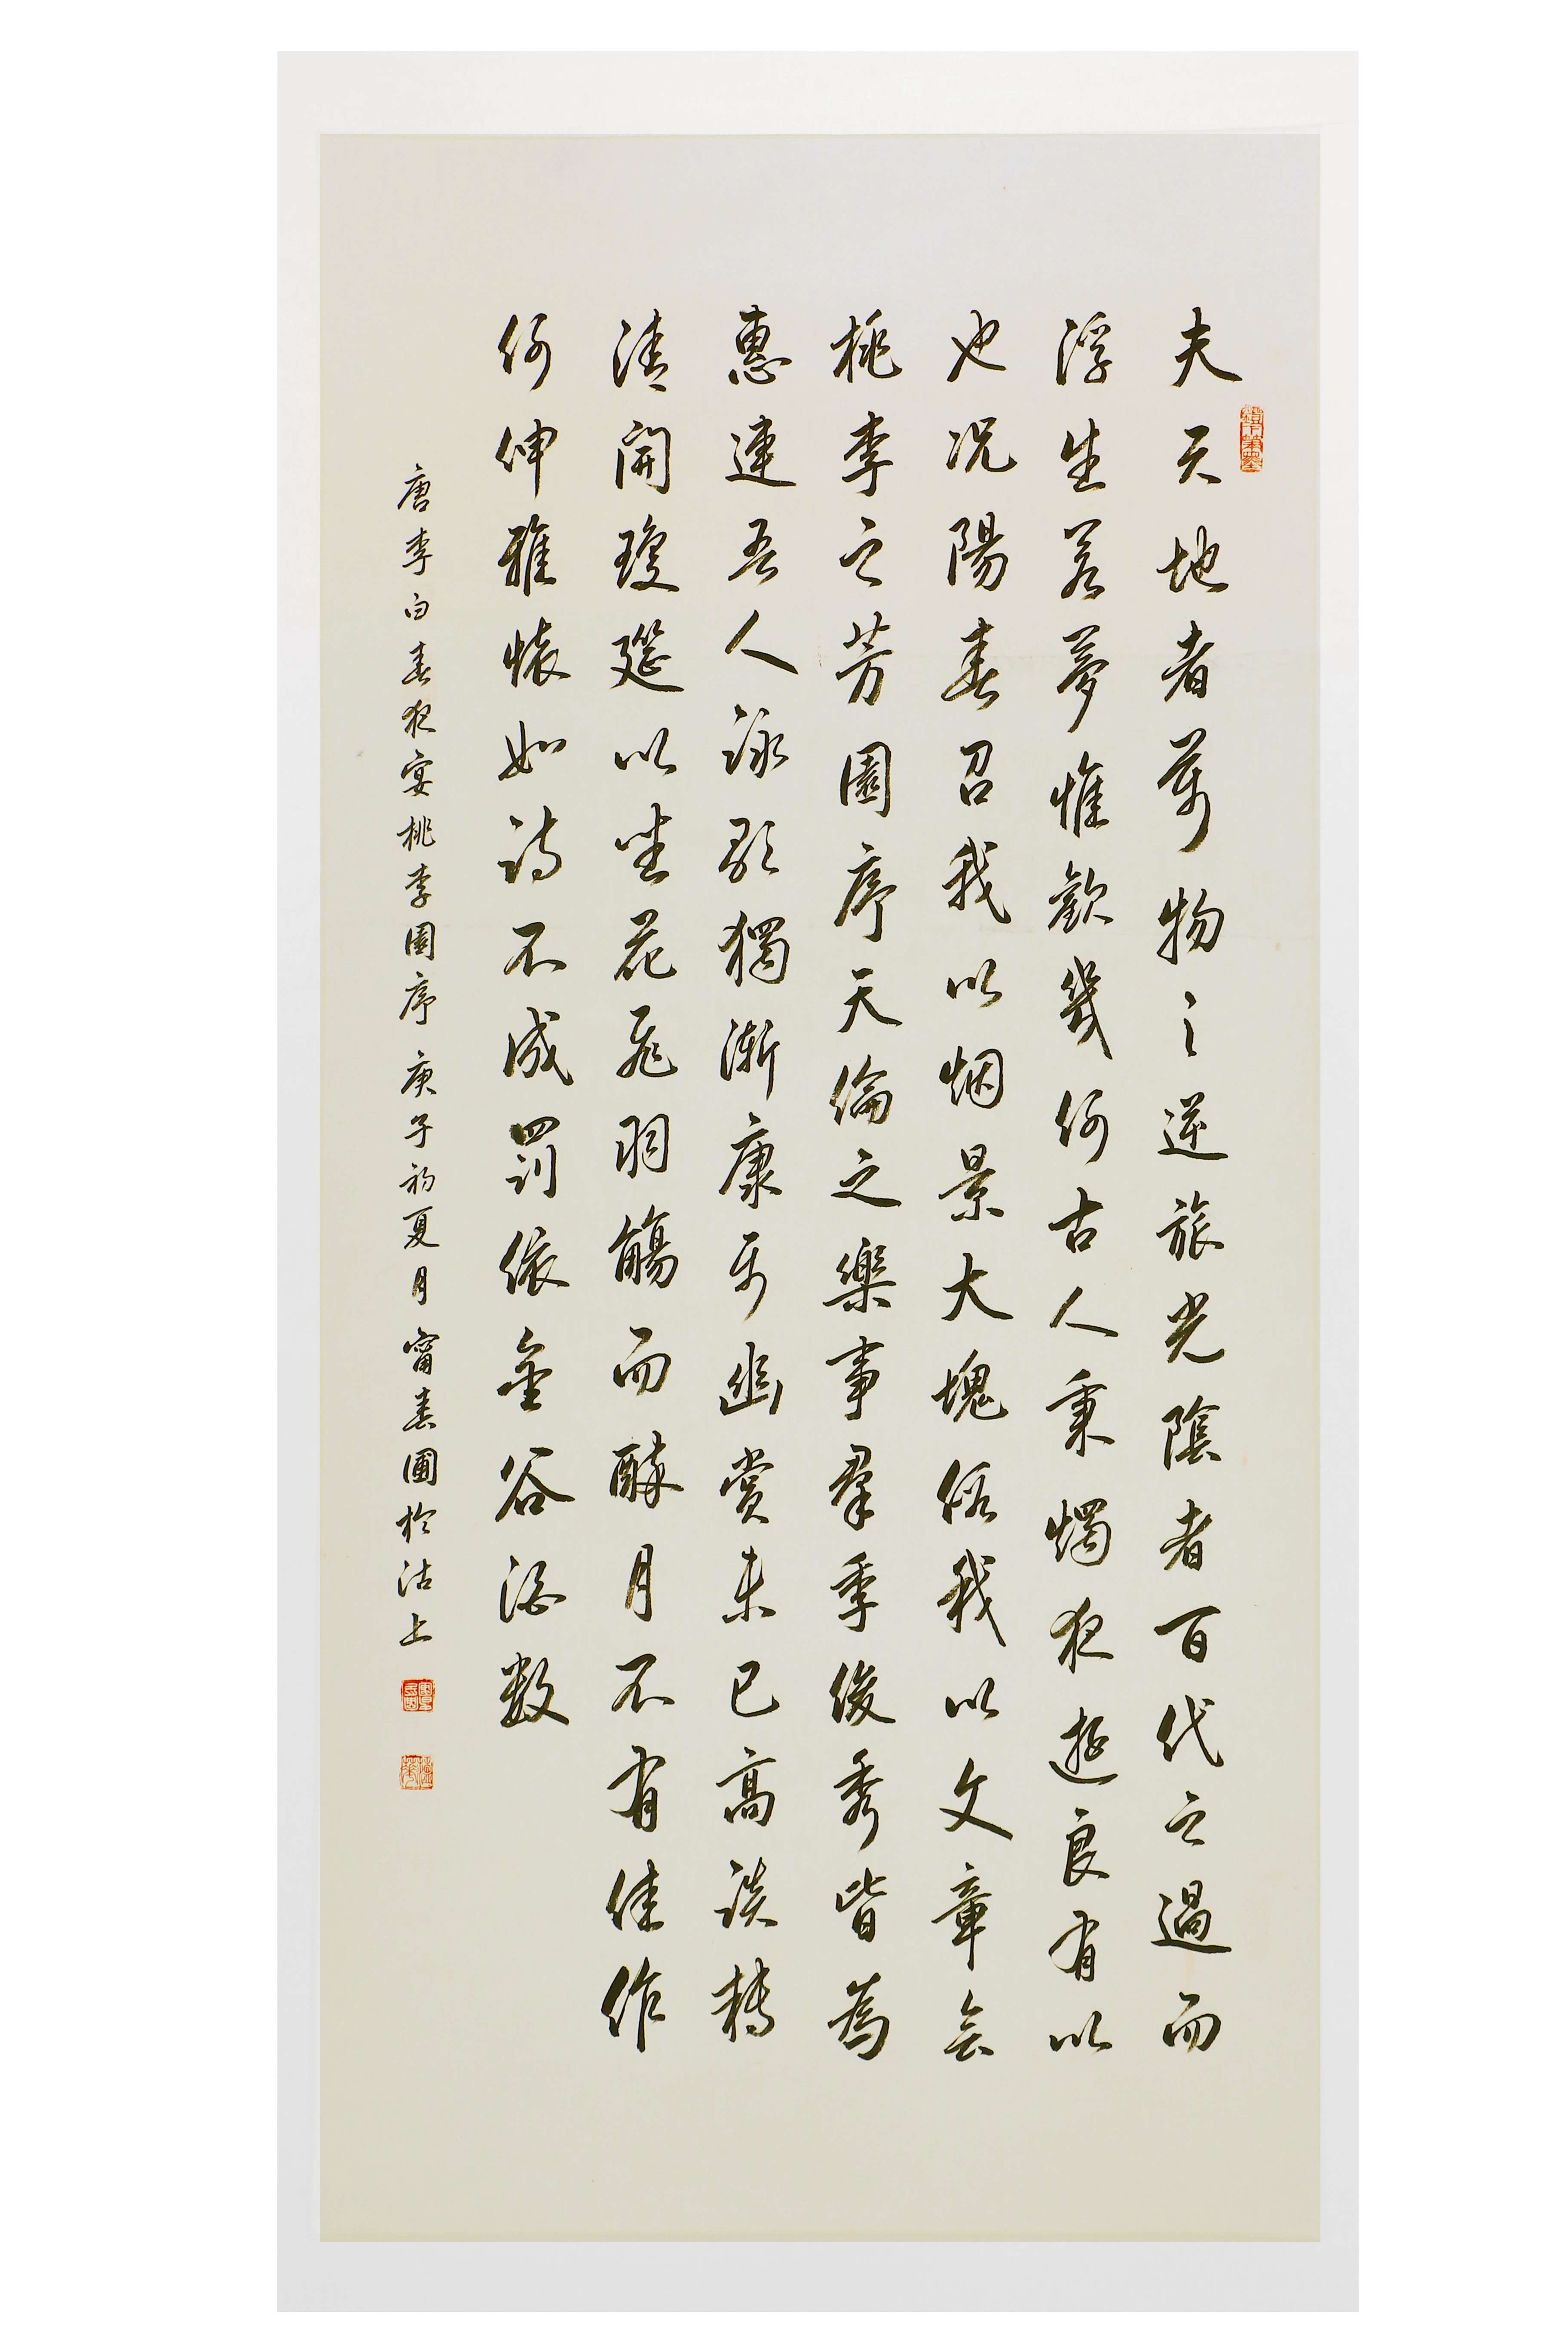 夫天地者萬物之逆旅光陰者百代之過而
浮生若夢惟歡幾何古人秉燭夜遊良有以
也況陽春召我以烟景大塊假我以文章会
桃李之芳園序天倫之樂事羣季俊秀皆為
惠連吾人詠歌獨漸康樂幽賞未已高談轉
清開瓊筵以坐花飛羽觴而醉月不有佳作
何伸雅懷如詩不成罰依金谷酒数
唐李白春夜宴桃李園序 庚子初夏月 甯春圃於沽上